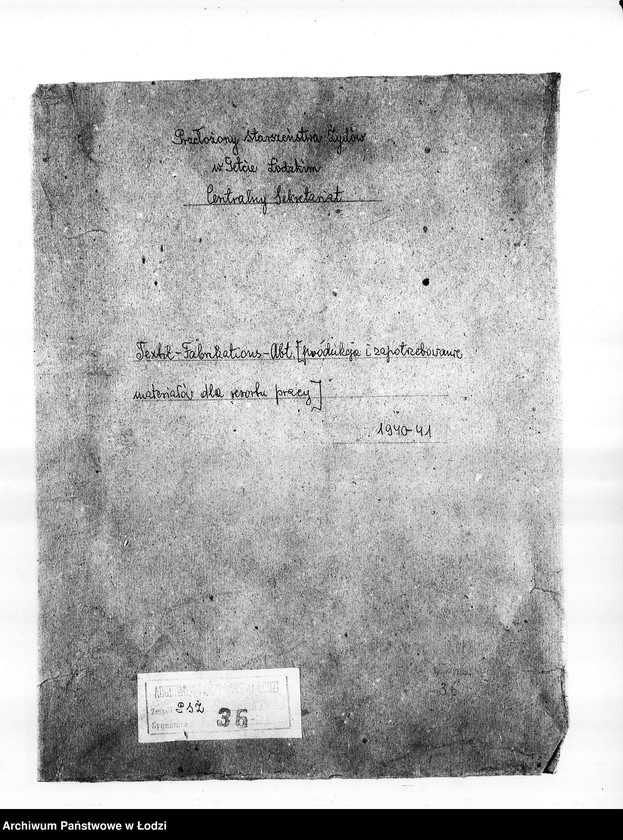 Przełożony Starszeństwa Żydów
w Getcie Łódzkim
Centralny Sekretariat
Textil-Fabrikations-Abt. [produkcja i zapotrzebowanie
materiałów dla resortu pracy]
1940-41
Zespół PSŻ
Sygnatura 36
36
Archiwum Państwowe w Łodzi